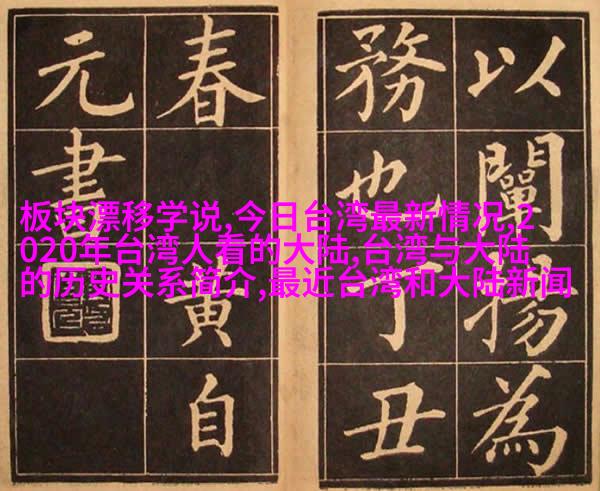 以闡揚為
務也丁丑
春黃自
元書
板块漂移学说,今日台湾最新情况,2
020年台湾人看的大陆,台湾与大陆
的历史关系简介,最近台湾和大陆新闻